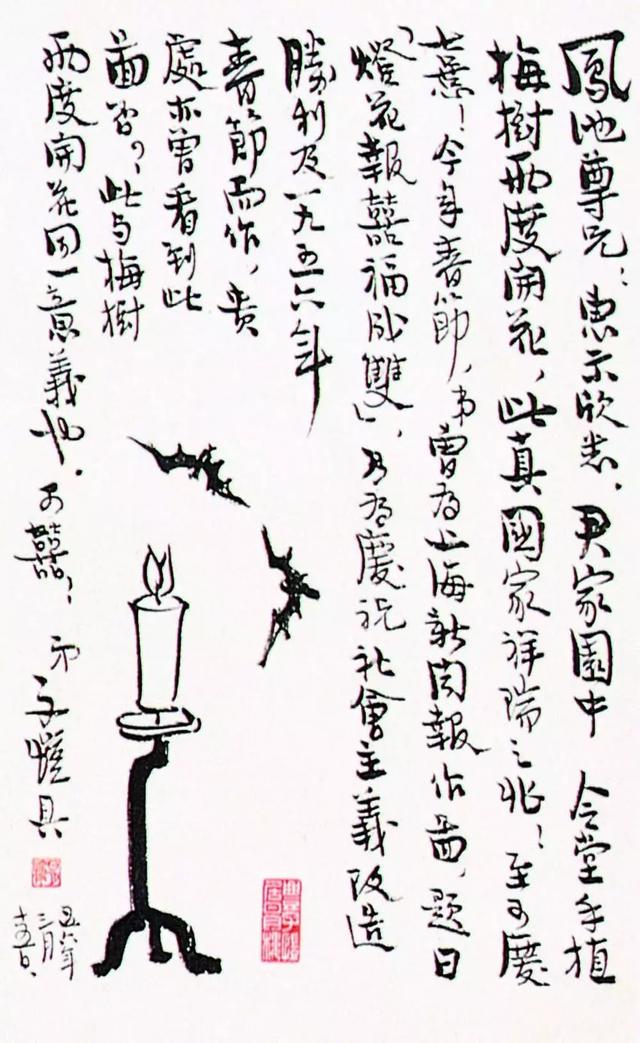 鳳池尊兄：惠示欣悉，君家園中 令堂手植
梅樹兩度開花，此真國家祥瑞之兆！至可慶
！今年春節，弟曾爲上海新聞報作畫，題曰
「燈花報囍福成雙」，乃爲慶祝社會主義改造
勝利及一九五六年
春節而作，貴
處亦曾看到此
畫否？，此与梅樹
兩度開花同一意義也。可囍！ 弟子愷具
五六年
三月
十五日